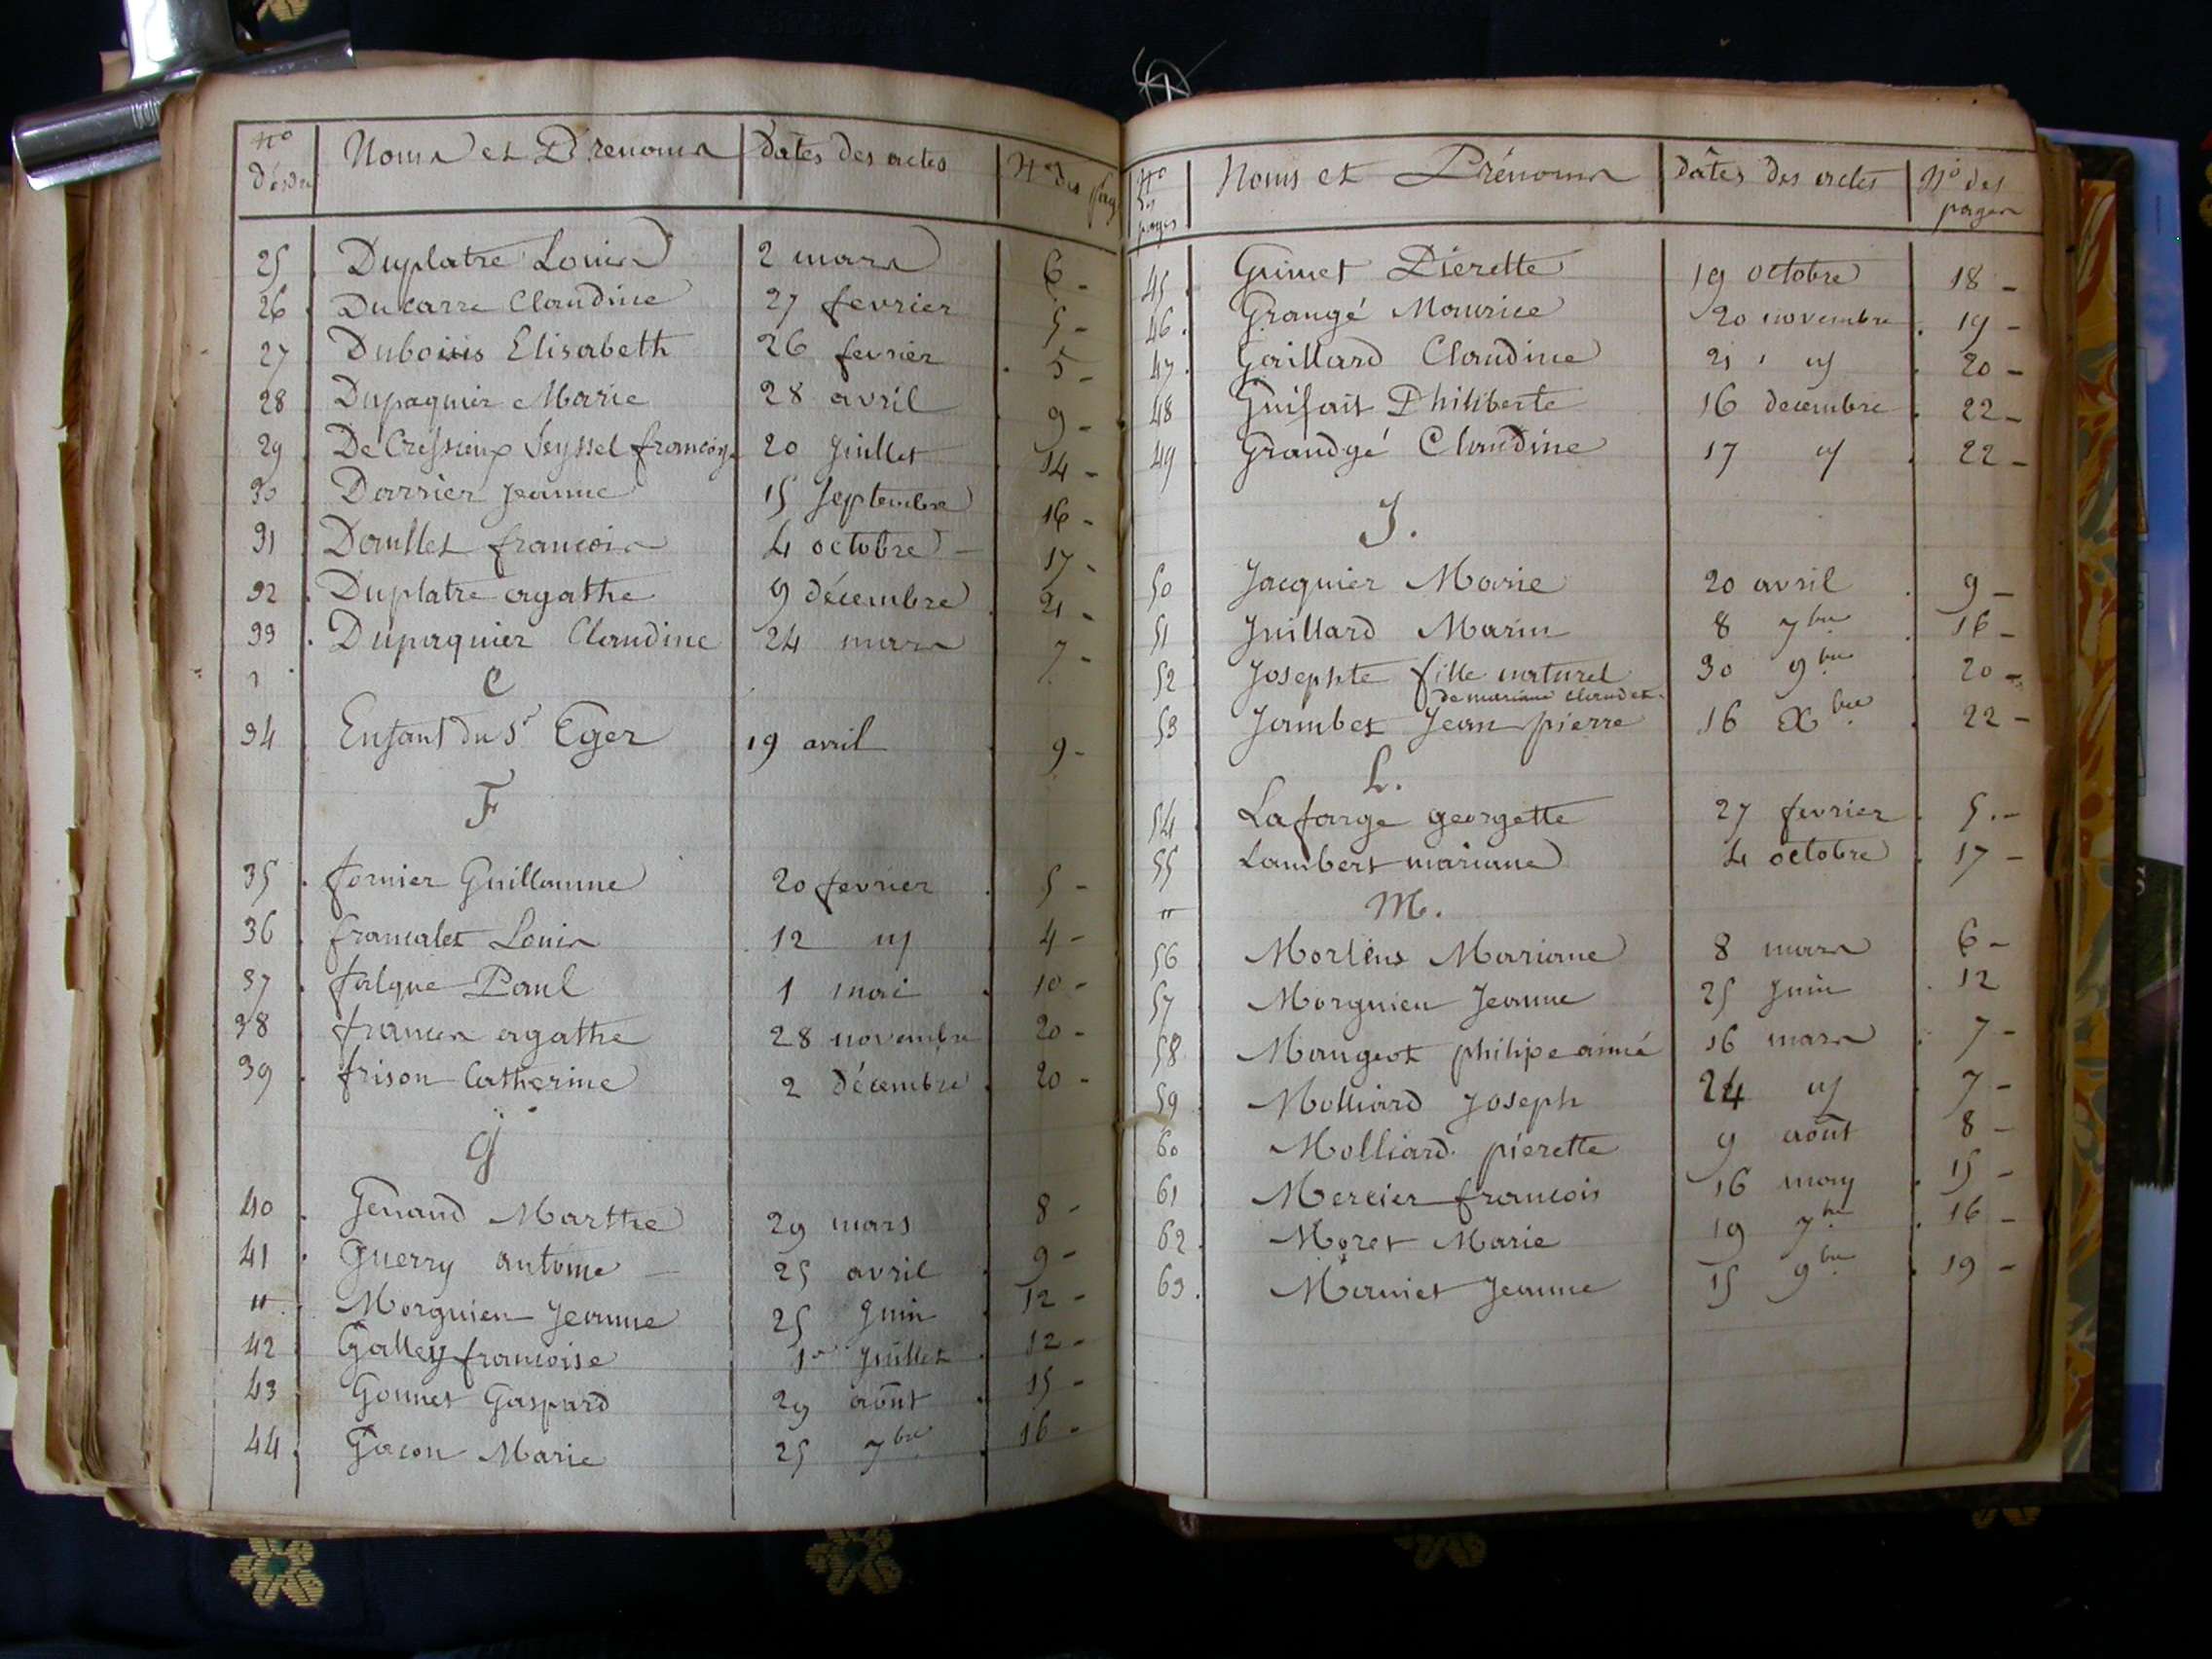 N° d'ordre Noms et Prenoms Dates des actes N° des pag
25 Duplatre Louis 2 mars 6 -
26 Ducarre Claudine 27 fevrier 5 -
27 Dubois Elisabeth 26 fevrier 5 -
28 Dupaquier Marie 28 avril 9 -
29 De Cressieux Seyssel francois 20 Juillet 14 -
30 Darrier Jeanne 15 Septembre 16 -
31 Doullet francois 4 octobre - 17 -
32 Duplatre agathe 9 décembre 21 -
33 Dupaquier Claudine 24 mars 7 -
E
34 Enfant du Sr Eger 19 avril 9 -
F
35 fornier Guillaume 20 fevrier 5 -
36 francalet Louis 12 id 4 -
37 falque Paul 1 mai 10 -
38 francs agathe 28 novembre 20 -
39 frison Catherine 2 décembre 20 -
G
40 Genand Marthe 29 mars 8 -
41 Guerry antoine - 25 avril 9 -
" Morguien Jeanne 25 Juin 12 -
42 Galley francoise 1er Juillet 12 -
43 Gonnet Gaspard 29 août 15 -
44 Gacon Marie 25 7bre 16 -
N° des pages Noms et Prénoms Dâtes des actes N° des pages
45 Guimet Pierette 19 octobre 18 -
46 Grangé Maurice 20 novembre 19 -
47 Gaillard Claudine 21 id 20 -
48 Guifait Philiberte 16 decembre 22 -
49 Grandgé Claudine 17 id 22 -
J.
50 Jacquier Marie 20 avril 9 -
51 Juillard Marin 8 7bre 16 -
52 Josephte fille naturel 30 9bre 20 -
de mariane claudet
53 Jambet Jean pierre 16 Xbre 22 -
L.
54 Lafarge georgette 27 fevrier 5 -
55 Lambert mariane 4 octobre 17 -
" M.
56 Morlens Mariane 8 mars 6 -
57 Morguien Jeanne 25 Juin 12
58 Maugeot philipe aimé 16 mars 7 -
59 Molliard Joseph 24 id 7 -
60 Molliard pierette 9 août 8 -
61 Mercier francois 16 may 15 -
62 Moret Marie 19 7bre 16 -
63 Merniet Jeanne 15 9bre 19 -